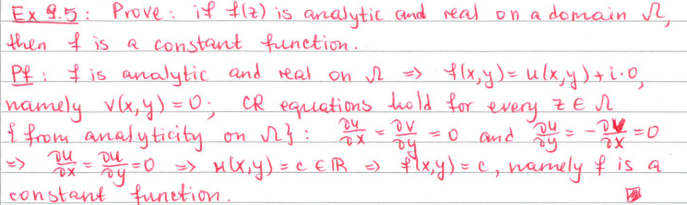 Ex 9.5: Prove: if f(z) is analytic and real on a domain Ω,
then f is a constant function.
Pf: f is analytic and real on Ω => f(x,y) = u(x,y) + i·0,
namely v(x,y) = 0; CR equations hold for every z ∈ Ω
{from analyticity on Ω}: ∂u/∂x = ∂v/∂y = 0 and ∂u/∂y = -∂v/∂x = 0
=> ∂u/∂x = ∂u/∂y = 0 => u(x,y) = c ∈ ℝ => f(x,y) = c, namely f is a
constant function.